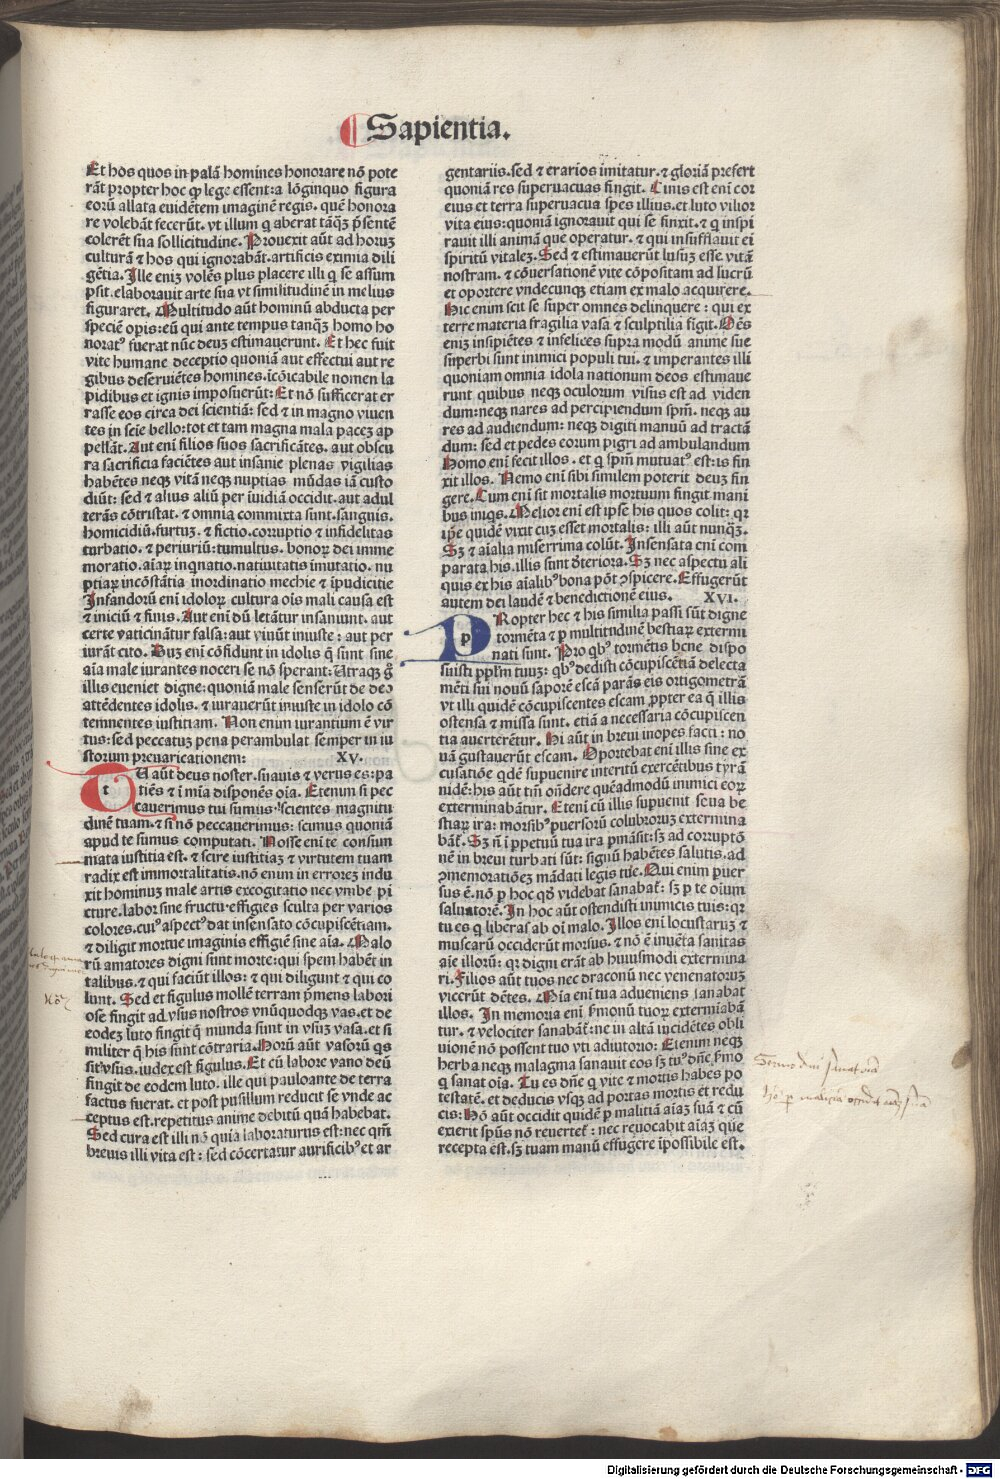 Sapientia.
Et hos quos in palā homines honorare nō pote
rāt propter hoc ꝙ lege essent: a lōginquo figura
eorū allata euidētem imaginē regis. quē honora
re volebāt fecerūt. vt illum q̄ aberat tāqȝ p̄sentē
colerēt sua sollicitudine. Prouexit aūt ad horuȝ
culturā ⁊ hos qui ignorabāt. artificis eximia dili
gētia. Ille eniȝ volēs plus placere illi q̄ se assum
psit. elaborauit arte sua vt similitudinē in melius
figuraret. Multitudo aūt hominū abducta per
speciē opis: eū qui ante tempus tanqȝ homo ho
noratꝰ fuerat nūc deuȝ estimauerunt. Et hec fuit
vite humane deceptio quoniā aut effectui aut re
gibus deseruiētes homines. icōicabile nomen la
pidibus et ignis imposuerūt: Et nō sufficerat er
rasse eos circa dei scientiā: sed ⁊ in magno viuen
tes in scie bello: tot et tam magna mala paceȝ ap
pellāt. Aut eni filios suos sacrificātes. aut obscu
ra sacrificia faciētes aut insanie plenas vigilias
habētes neqȝ vitā neqȝ nuptias mūdas iā custo
diūt: sed ⁊ alius aliū per iuidiā occidit. aut adul
terās cōtristat. ⁊ omnia commixta sunt. sanguis.
homicidiū. furtuȝ. ⁊ fictio. corruptio ⁊ infidelitas
turbatio. ⁊ periuriū: tumultus. bonoꝝ dei imme
moratio. aiaꝝ inq̄natio. natiuitatis imutatio. nu
ptiaꝝ incōstātia inordinatio mechie ⁊ ipudicitie
Infandorū eni idoloꝝ cultura ois mali causa est
⁊ iniciū ⁊ finis. Aut eni dū letātur insaniunt. aut
certe vaticinātur falsa: aut viuūt iniuste: aut per
iurāt cito. Duȝ eni cōfidunt in idolis q̄ sunt sine
aia male iurantes noceri se nō sperant: Utraqȝ g̊
illis eueniet digne: quoniā male senserūt de deo
attēdentes idolis. ⁊ iurauerūt iniuste in idolo cō
temnentes iustitiam. Non enim iurantium ē vir
tus: sed peccatuȝ pena perambulat semper in iu
storum preuaricationem: XV.
TU aūt deus noster. suauis ⁊ verus es: pa
tiēs ⁊ i mia disponēs oia. Etenim si pec
cauerimus tui sumus: scientes magnitu
dinē tuam. ⁊ si nō peccauerimus: scimus quoniā
apud te sumus computati. Nosse eni te consum
mata iustitia est. ⁊ scire iustitiaȝ ⁊ virtutem tuam
radix est immortalitatis. nō enim in erroreȝ indu
xit hominuȝ male artis excogitatio nec vmbe pi
cture. labor sine fructu. effigies sculta per varios
colores. cuiꝰ aspectꝰ dat insensato cōcupiscētiam.
⁊ diligit mortue imaginis effigiē sine aia. Malo
rū amatores digni sunt morte: qui spem habēt in
talibus. ⁊ qui faciūt illos: ⁊ qui diligunt ⁊ qui co
lunt. Sed et figulus mollē terram p̄mens labori
ose fingit ad vsus nostros vnūquodqȝ vas. et de
eodeȝ luto fingit q̄ munda sunt in vsuȝ vasa. et si
militer q̄ his sunt cōtraria. Horū aūt vasorū qs
sit vsus. iudex est figulus. Et cū labore vano deū
fingit de eodem luto. ille qui pauloante de terra
factus fuerat. et post pusillum reducit se vnde ac
ceptus est. repetitus anime debitū quā habebat.
Sed cura est illi nō quia laboraturus est: nec qm̄
breuis illi vita est: sed cōcertatur aurificibꝰ et ar
gentariis. sed ⁊ erarios imitatur. ⁊ gloriā prefert
quoniā res superuacuas fingit. Cinis est eni cor
eius et terra superuacua spes illius. et luto vilior
vita eius: quoniā ignorauit qui se finxit. ⁊ q̄ inspi
rauit illi animā que operatur. ⁊ qui insufflauit ei
spiritū vitaleȝ. Sed ⁊ estimauerūt lusuȝ esse vitā
nostram. ⁊ cōuersationē vite cōpositam ad lucrū
et oportere vndecunqȝ etiam ex malo acquirere.
Hic enim scit se super omnes delinquere: qui ex
terre materia fragilia vasa ⁊ sculptilia figit. Oēs
eniȝ insipiētes ⁊ infelices supra modū anime sue
superbi sunt inimici populi tui. ⁊ imperantes illi
quoniam omnia idola nationum deos estimaue
runt quibus neqȝ oculorum visus est ad viden
dum: neqȝ nares ad percipiendum spm̄. neqȝ au
res ad audiendum: neqȝ digiti manuū ad tractā
dum: sed et pedes eorum pigri ad ambulandum
Homo eni fecit illos. et q̄ spm̄ mutuatꝰ est: is fin
xit illos. Nemo eni sibi similem poterit deuȝ fin
gere. Cum eni sit mortalis mortuum fingit mani
bus iniqs. Melior eni est ipse his quos colit: qꝛ
ip̄e quidē vixit cuȝ esset mortalis: illi aūt nunqȝ.
Sȝ ⁊ aialia miserrima colūt. Insensata eni com
parata his. illis sunt deteriora. Sȝ nec aspectu ali
quis ex his aialibꝰ bona pōt ꝯspicere. Effugerūt
autem dei laudē ⁊ benedictionē eius. XVI.
PRopter hec ⁊ his similia passi sūt digne
tormēta ⁊ p̱ multitudinē bestiaꝝ extermi
nati sunt. Pro qbꝰ tormētis bene dispo
suisti pplm̄ tuuȝ: qbꝰ dedisti cōcupiscētiā delecta
mēti sui nouū saporē escā parās eis ortigometrā
vt illi quidē cōcupiscentes escam ꝓpter ea q̄ illis
ostensa ⁊ missa sunt. etiā a necessaria cōcupiscen
tia auerterētur. Hi aūt in breui inopes facti: no
uā gustauerūt escam. Oportebat eni illis sine ex
cusatiōe qdē supuenire interitū exercētibus tyrā
nidē: his aūt tm̄ oñdere quēadmodū inimici eoꝝ
exterminabātur. Eteni cū illis supuenit seua be
stiaꝝ ira: morsibꝰ puersorū colubrorūȝ extermina
bāt̄. Sȝ n̄ i ppetuū tua ira pmāsit: sȝ ad corruptō
nē in breui turbati sūt: signū habētes salutis. ad
ꝯmemoratiōeȝ mādati legis tue. Qui enim ꝯuer
sus ē. nō p̱ hoc qđ videbat sanabat̄: sȝ p̱ te oium
saluatorē. In hoc aūt ostendisti inimicis tuis: qꝛ
tu es q̄ liberas ab oi malo. Illos eni locustaruȝ ⁊
muscarū occiderūt morsus. ⁊ nō ē inuēta sanitas
aie illorū: qꝛ digni erāt ab huiusmodi extermina
ri. Filios aūt tuos nec draconū nec venenatoruȝ
vicerūt dētes. Mia eni tua adueniens sanabat
illos. In memoria eni s̄monū tuoꝝ extermiabā
tur. ⁊ velociter sanabāt̄: ne in altā incidētes obli
uionē nō possent tuo vti adiutorio: Etenim neqȝ
herba neqȝ malagna sanauit eos sȝ tuꝰ dn̄e s̄mo
q̄ sanat oia. Tu es dn̄e q̄ vite ⁊ mortis habes po
testatē. et deducis vsqȝ ad portas mortis et redu
cis: Hō aūt occidit quidē p̱ malitiā aiaȝ suā ⁊ cū
exierit spūs nō reuertet̄: nec reuocabit aiaȝ que
recepta est. sȝ tuam manū effugere ipossibile est.
Digitalisierung gefördert durch die Deutsche Forschungsgemeinschaft - DFG